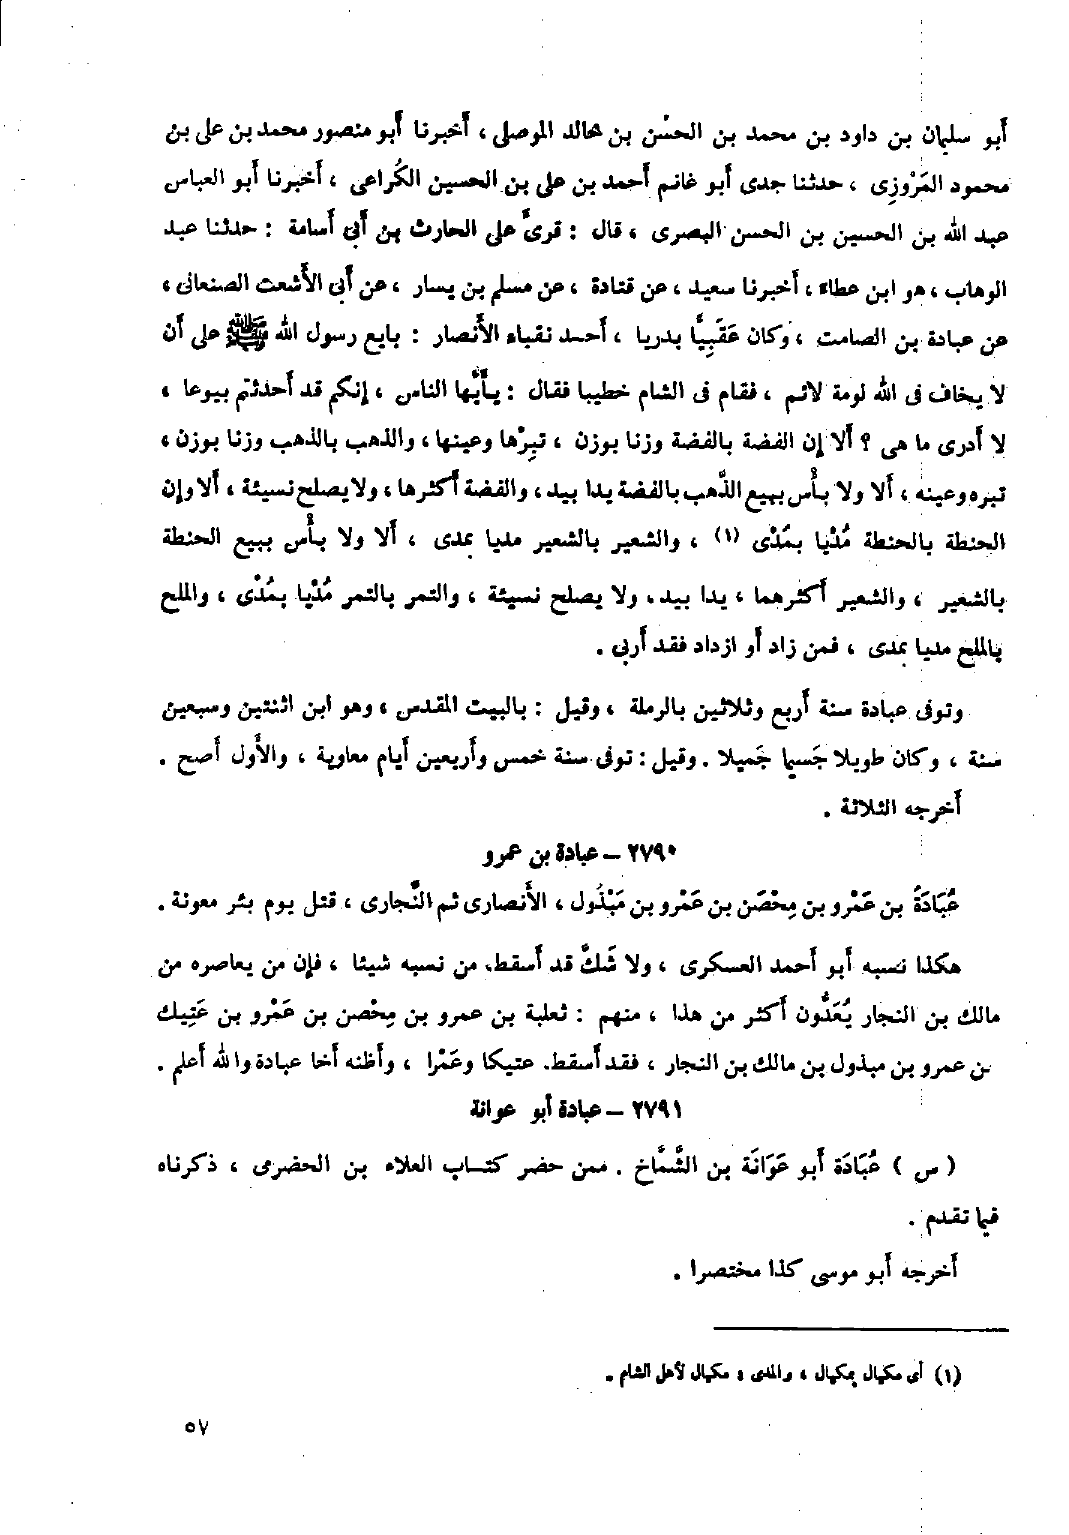 أبو سليمان بن داود بن محمد بن الحسن بن خالد الموصلى ، أخبرنا أبو منصور محمد بن على بن
محمود المَرْوَزِى ، حدثنا جدى أبو غانم أحمد بن على بن الحسين الكُراعى ، أخبرنا أبو العباس
عبد الله بن الحسين بن الحسن البصرى ، قال : قرىُّ على الحارث بن أبى أسامة : حدثنا عبد
الوهاب ، هو ابن عطاء ، أخبرنا سعيد ، عن قتادة ، عن مسلم بن يسار ، عن أبى الأشعث الصنعانى ،
عن عبادة بن الصامت ، وكان عَقَبِيًّا بدريا ، أحد نقباء الأنصار : بايع رسول الله ﷺ على أن
لا يخاف فى الله لومة لائم ، فقام فى الشام خطيبا فقال : يأيُّها الناس ، إنكم قد أحدثتم بيوعا ،
لا أدرى ما هى ؟ ألا إن الفضة بالفضة وزنا بوزن ، تبرِّها وعينها ، والذهب بالذهب وزنا بوزن ،
تبره وعينه ، ألا ولا بأْس ببيع الذَّهب بالفضة يدا بيد ، والفضة أكثرها ، ولا يصلح نسيئة ، ألا وإن
الحنطة بالحنطة مُدْيا بمُدْى (١) ، والشعير بالشعير مديا بمدى ، ألا ولا بأْس ببيع الحنطة
بالشعير ، والشعير أكثرهما ، يدا بيد، ولا يصلح نسيئة ، والتمر بالتمر مُدْيا بمُدْى ، والملح
بالملح مديا بمدى ، فمن زاد أو ازداد فقد أربى .
وتوفى عبادة سنة أربع وثلاثين بالرملة ، وقيل : بالبيت المقدس ، وهو ابن اثنتين وسبعين
سنة ، وكان طويلا جَسيما جَميلا . وقيل : توفى سنة خمس وأربعين أيام معاوية ، والأول أصح .
أخرجه الثلاثة .
٢٧٩٠ – عبادة بن عمرو
عُبَادَةُ بن عَمْرو بن مِحْصَن بن عَمْرو بن مَبْذُول ، الأنصارى ثم النَّجارى ، قتل يوم بئر معونة .
هكذا نسبه أبو أحمد العسكرى ، ولا شَكَّ قد أسقط من نسبه شيئا ، فإن من يعاصره من
مالك بن النجار يُعَدُّون أكثر من هذا ، منهم : ثعلبة بن عمرو بن مِحْصن بن عَمْرو بن عَتِيك
بن عمرو بن مبذول بن مالك بن النجار ، فقد أسقط عتيكا وعَمْرا ، وأظنه أخا عبادة والله أعلم .
٢٧٩١ – عبادة أبو عوانة
( س ) عُبَادَة أبو عَوَانَة بن الشَّمَّاخ . ممن حضر كتاب العلاء بن الحضرمى ، ذكرناه
فيما تقدم .
أخرجه أبو موسى كذا مختصرا .
(١) أى مكيال بمكيال ، والمدى : مكيال لأهل الشام .
٥٧